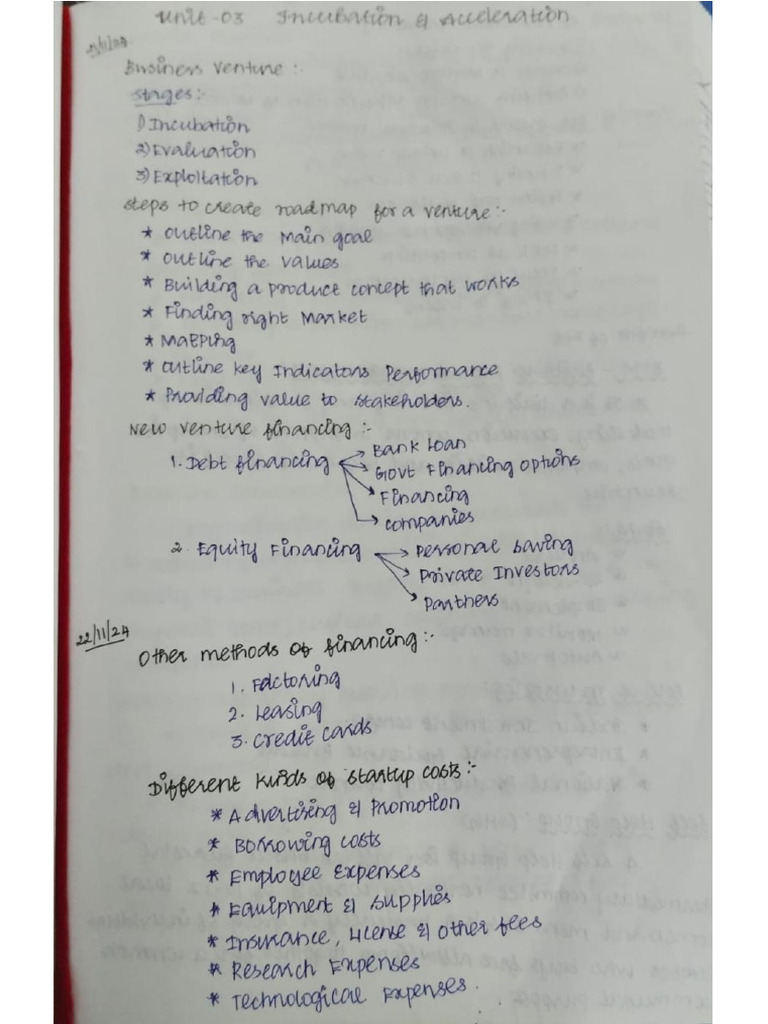 Unit-03 Incubation & Acceleration
Business Venture :-
Stages :-
1) Incubation
2) Evaluation
3) Exploitation
Steps to create roadmap for a venture :-
* Outline the Main goal
* Outline the Values
* Building a product concept that works
* Finding right Market
* Mapping
* Outline key Indicators Performance
* Providing value to stakeholders.
New Venture financing :-
1. Debt financing → Bank Loan
→ Govt Financing Options
→ Financing
→ Companies
2. Equity Financing → Personal Saving
→ Private Investors
→ Partners
22/11/24
Other methods of financing :-
1. Factoring
2. Leasing
3. Credit cards
Different kinds of startup costs :-
* Advertising & Promotion
* Borrowing costs
* Employee Expenses
* Equipment & Supplies
* Insurance, License & other fees
* Research Expenses
* Technological Expenses.